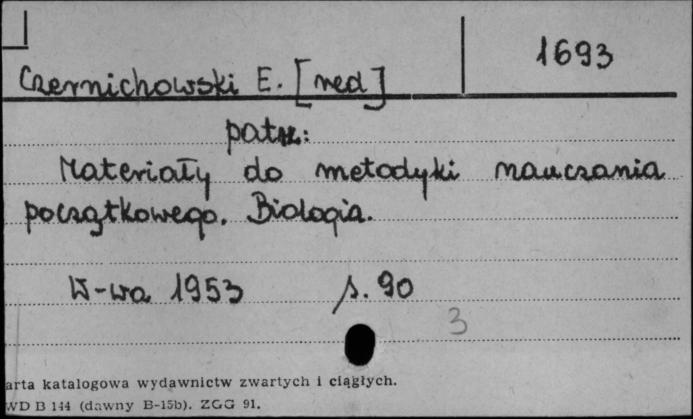 1693
Czernichowski E. [red]
patrz:
Materiały do metodyki nauczania
początkowego. Biologia.
W-wa 1953 s. 90
3
arta katalogowa wydawnictw zwartych i ciągłych.
WD B 144 (dawny B-15b). ZGG 91.